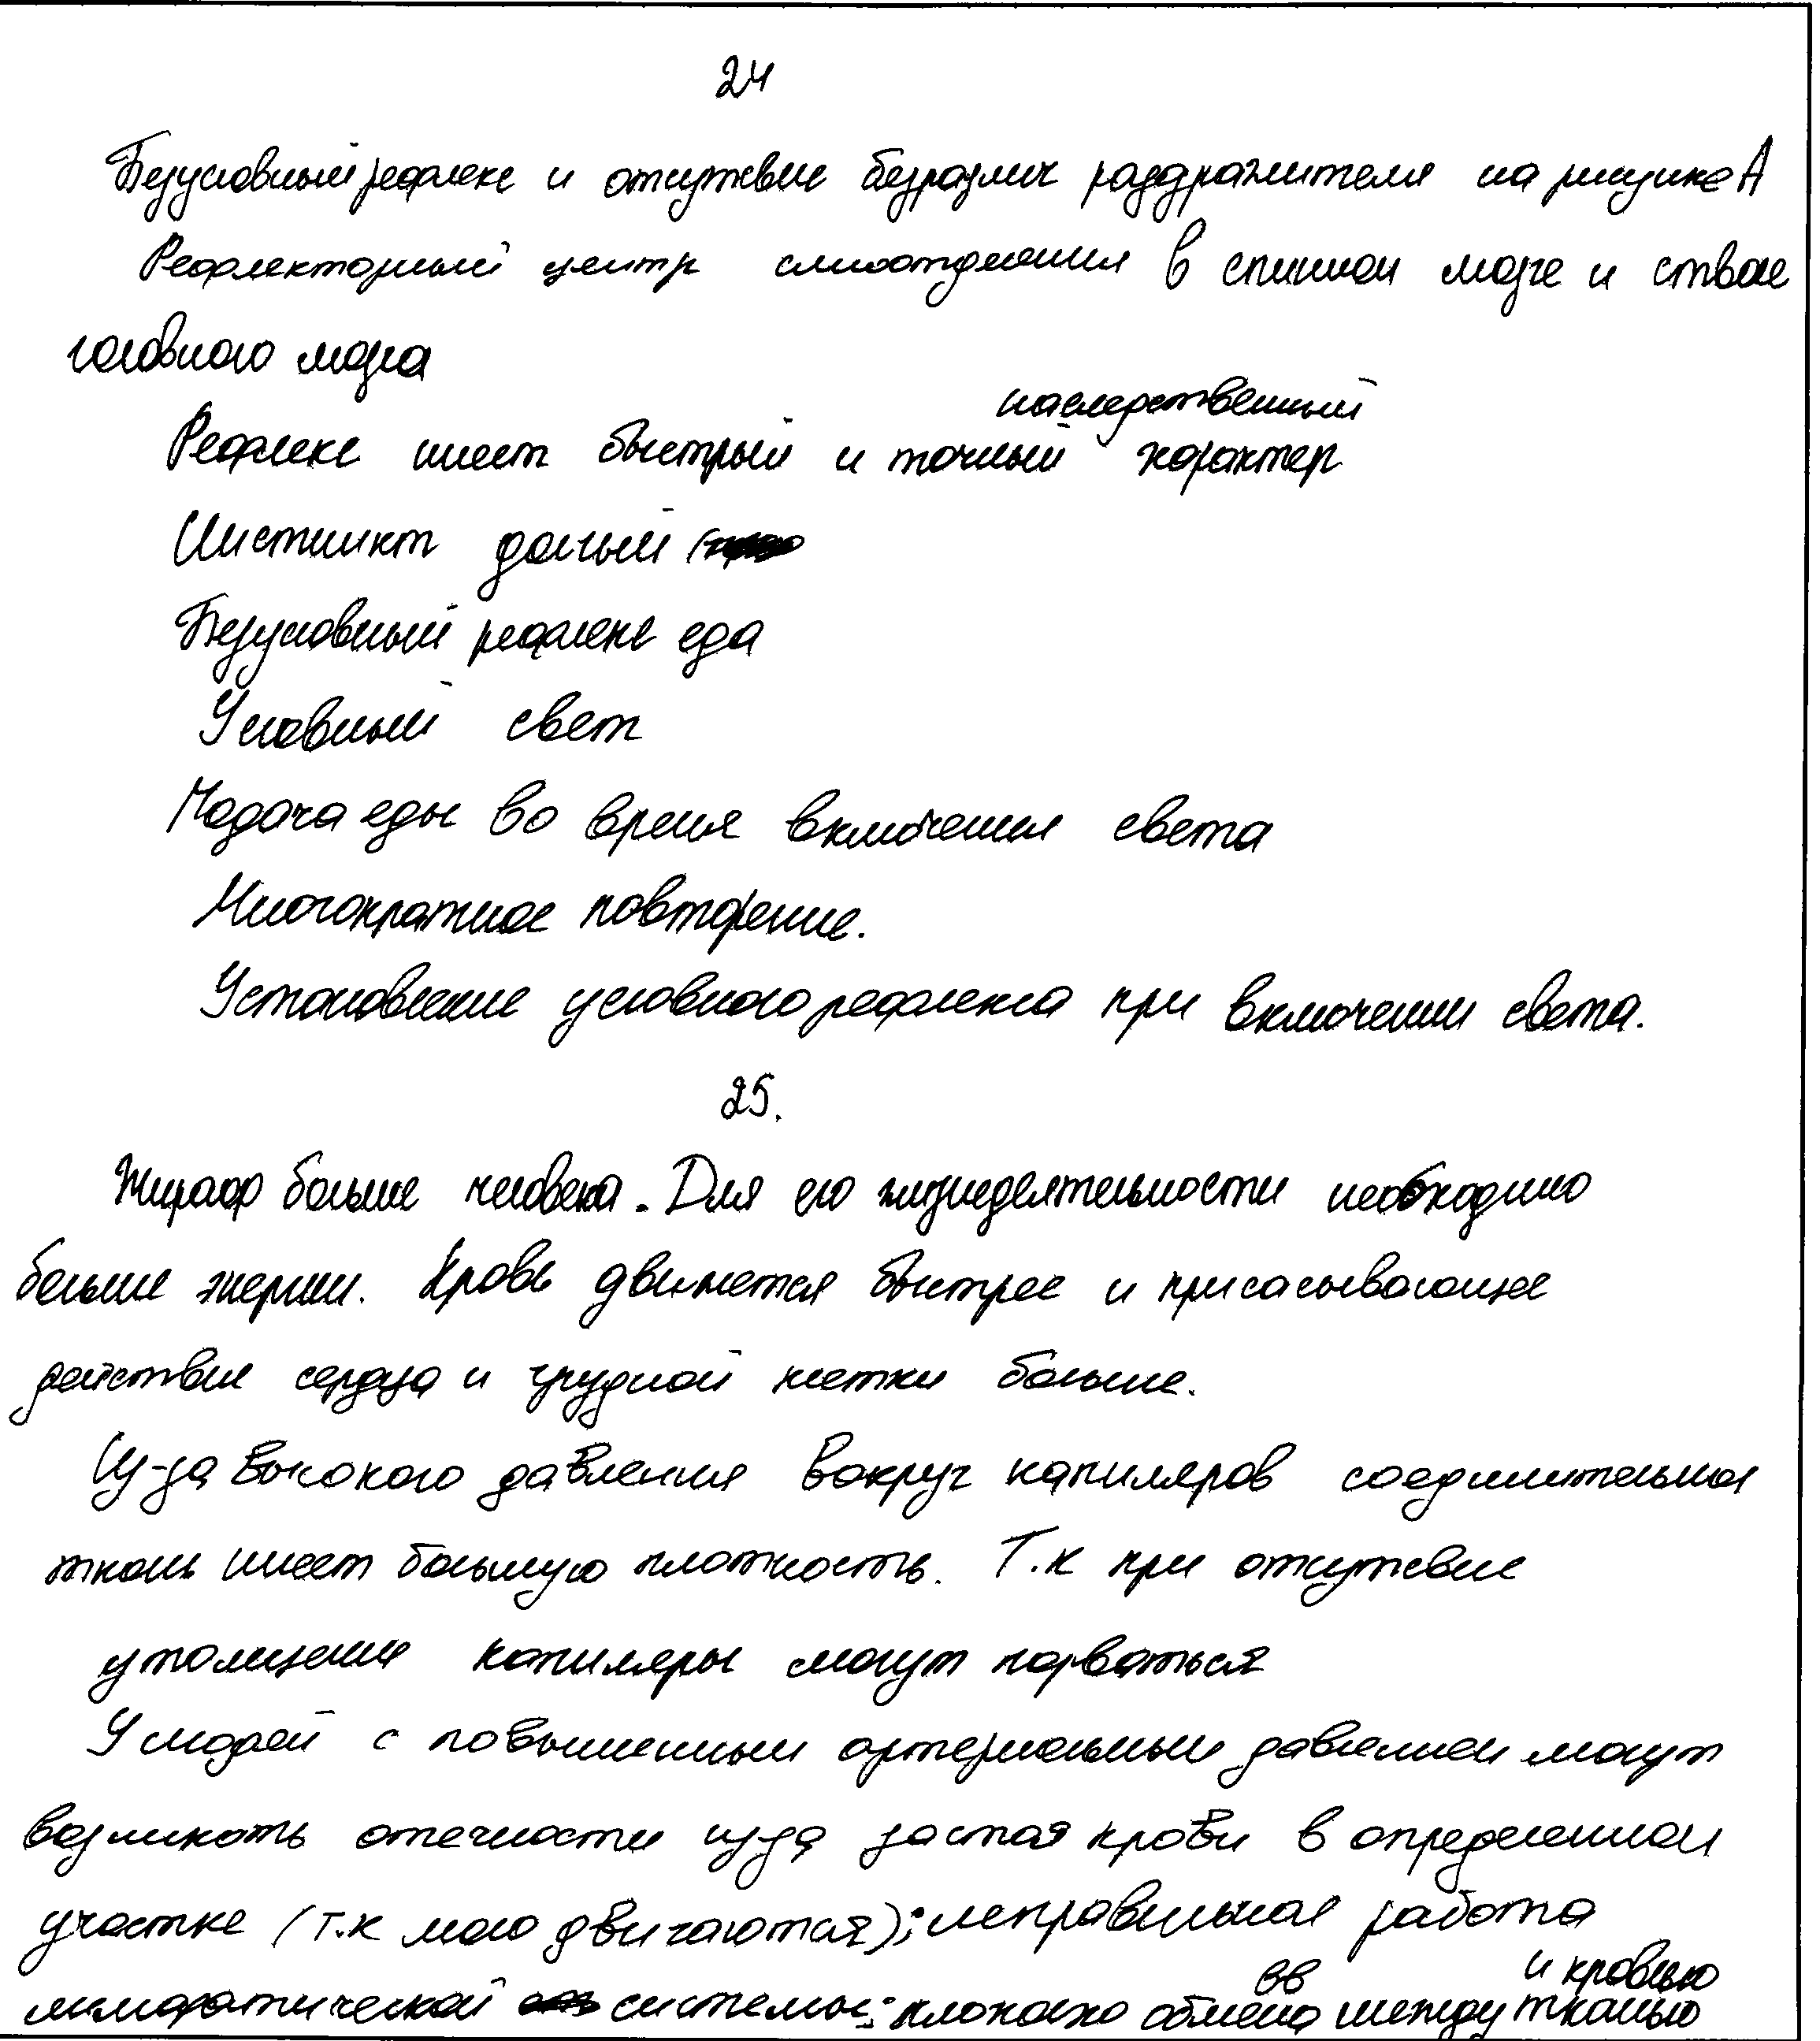 24
Безусловный рефлекс и отсутсвие безразлич раздражителя на рисунке А
Рефлекторный центр слюноотделения в спинном мозге и стволе
головного мозга
наследственный
Рефлекс имеет быстрый и точный характер
Инстинкт
Безусловный рефлекс еда
Условный свет
Подача еды во время включения света
Многократное повторение.
Установление условного рефлекса при включении света.
25.
Жираф больше человека. Для его жизнедеятельности необходимо
больше энергии. Кровь движется быстрее и присасывающее
действие сердца и грудной клетки больше.
Из-за высокого давления вокруг капиляров соединительная
ткань имеет большую плотность. Т.к при отсутсвие
утолщения капиляры могут порваться
У людей с повышенным артериальным давлением могут
возникать отечности из-за застоя крови в определенном
участке (т.к мало двигаются); неправильная работа
лимфатической системы; плохого обмена вв между тканью и кровью